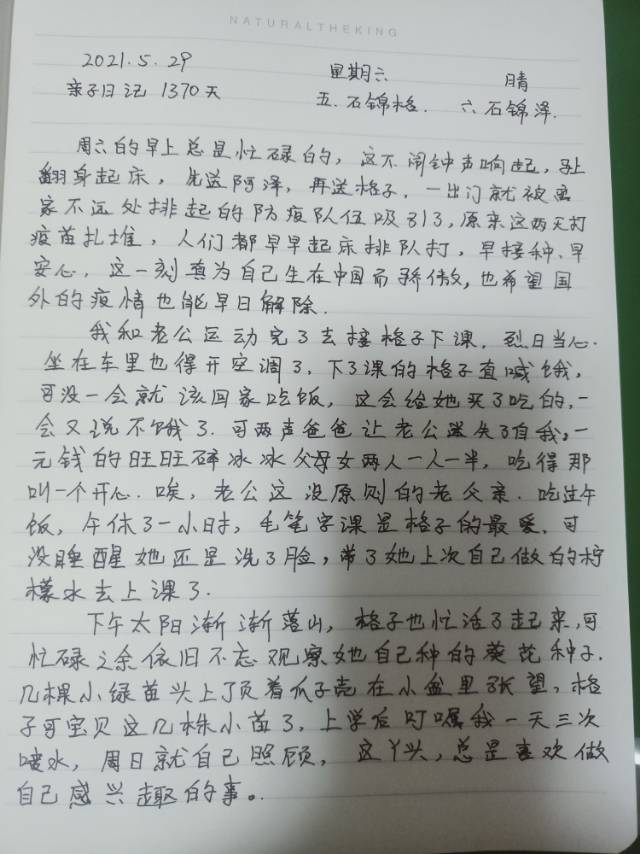 NATURALTHEKING
2021.5.29 星期六 晴
亲子日记 1370天 五.石锦格. 六石锦泽.
周六的早上总是忙碌的,这不闹钟声响起,马上
翻身起床,先送阿泽,再送格子.一出门就被离
家不远处排起的防疫队伍吸引了,原来这两天打
疫苗扎堆,人们都早早起床排队打,早接种.早
安心.这一刻真为自己生在中国而骄傲,也希望国
外的疫情也能早日解除.
我和老公运动完了去接格子下课.烈日当心.
坐在车里也得开空调了.下了课的格子直喊饿,
可没一会就该回家吃饭,这会给她买了吃的,一
会又说不饿了.可两声爸爸让老公迷失了自我,一
元钱的旺旺碎冰冰父女两人一人一半,吃得那
叫一个开心.唉,老公这没原则的老父亲.吃过午
饭,午休了一小时,毛笔字课是格子的最爱.可
没睡醒她还是洗了脸,带了她上次自己做的柠
檬水去上课了.
下午太阳渐渐落山,格子也忙活了起来,可
忙碌之余依旧不忘观察她自己种的葵花种子.
几棵小绿苗头上顶着瓜子壳在小盆里张望,格
子可宝贝这几株小苗了,上学后叮嘱我一天三次
喷水,周日就自己照顾,这丫头,总是喜欢做
自己感兴趣的事。.